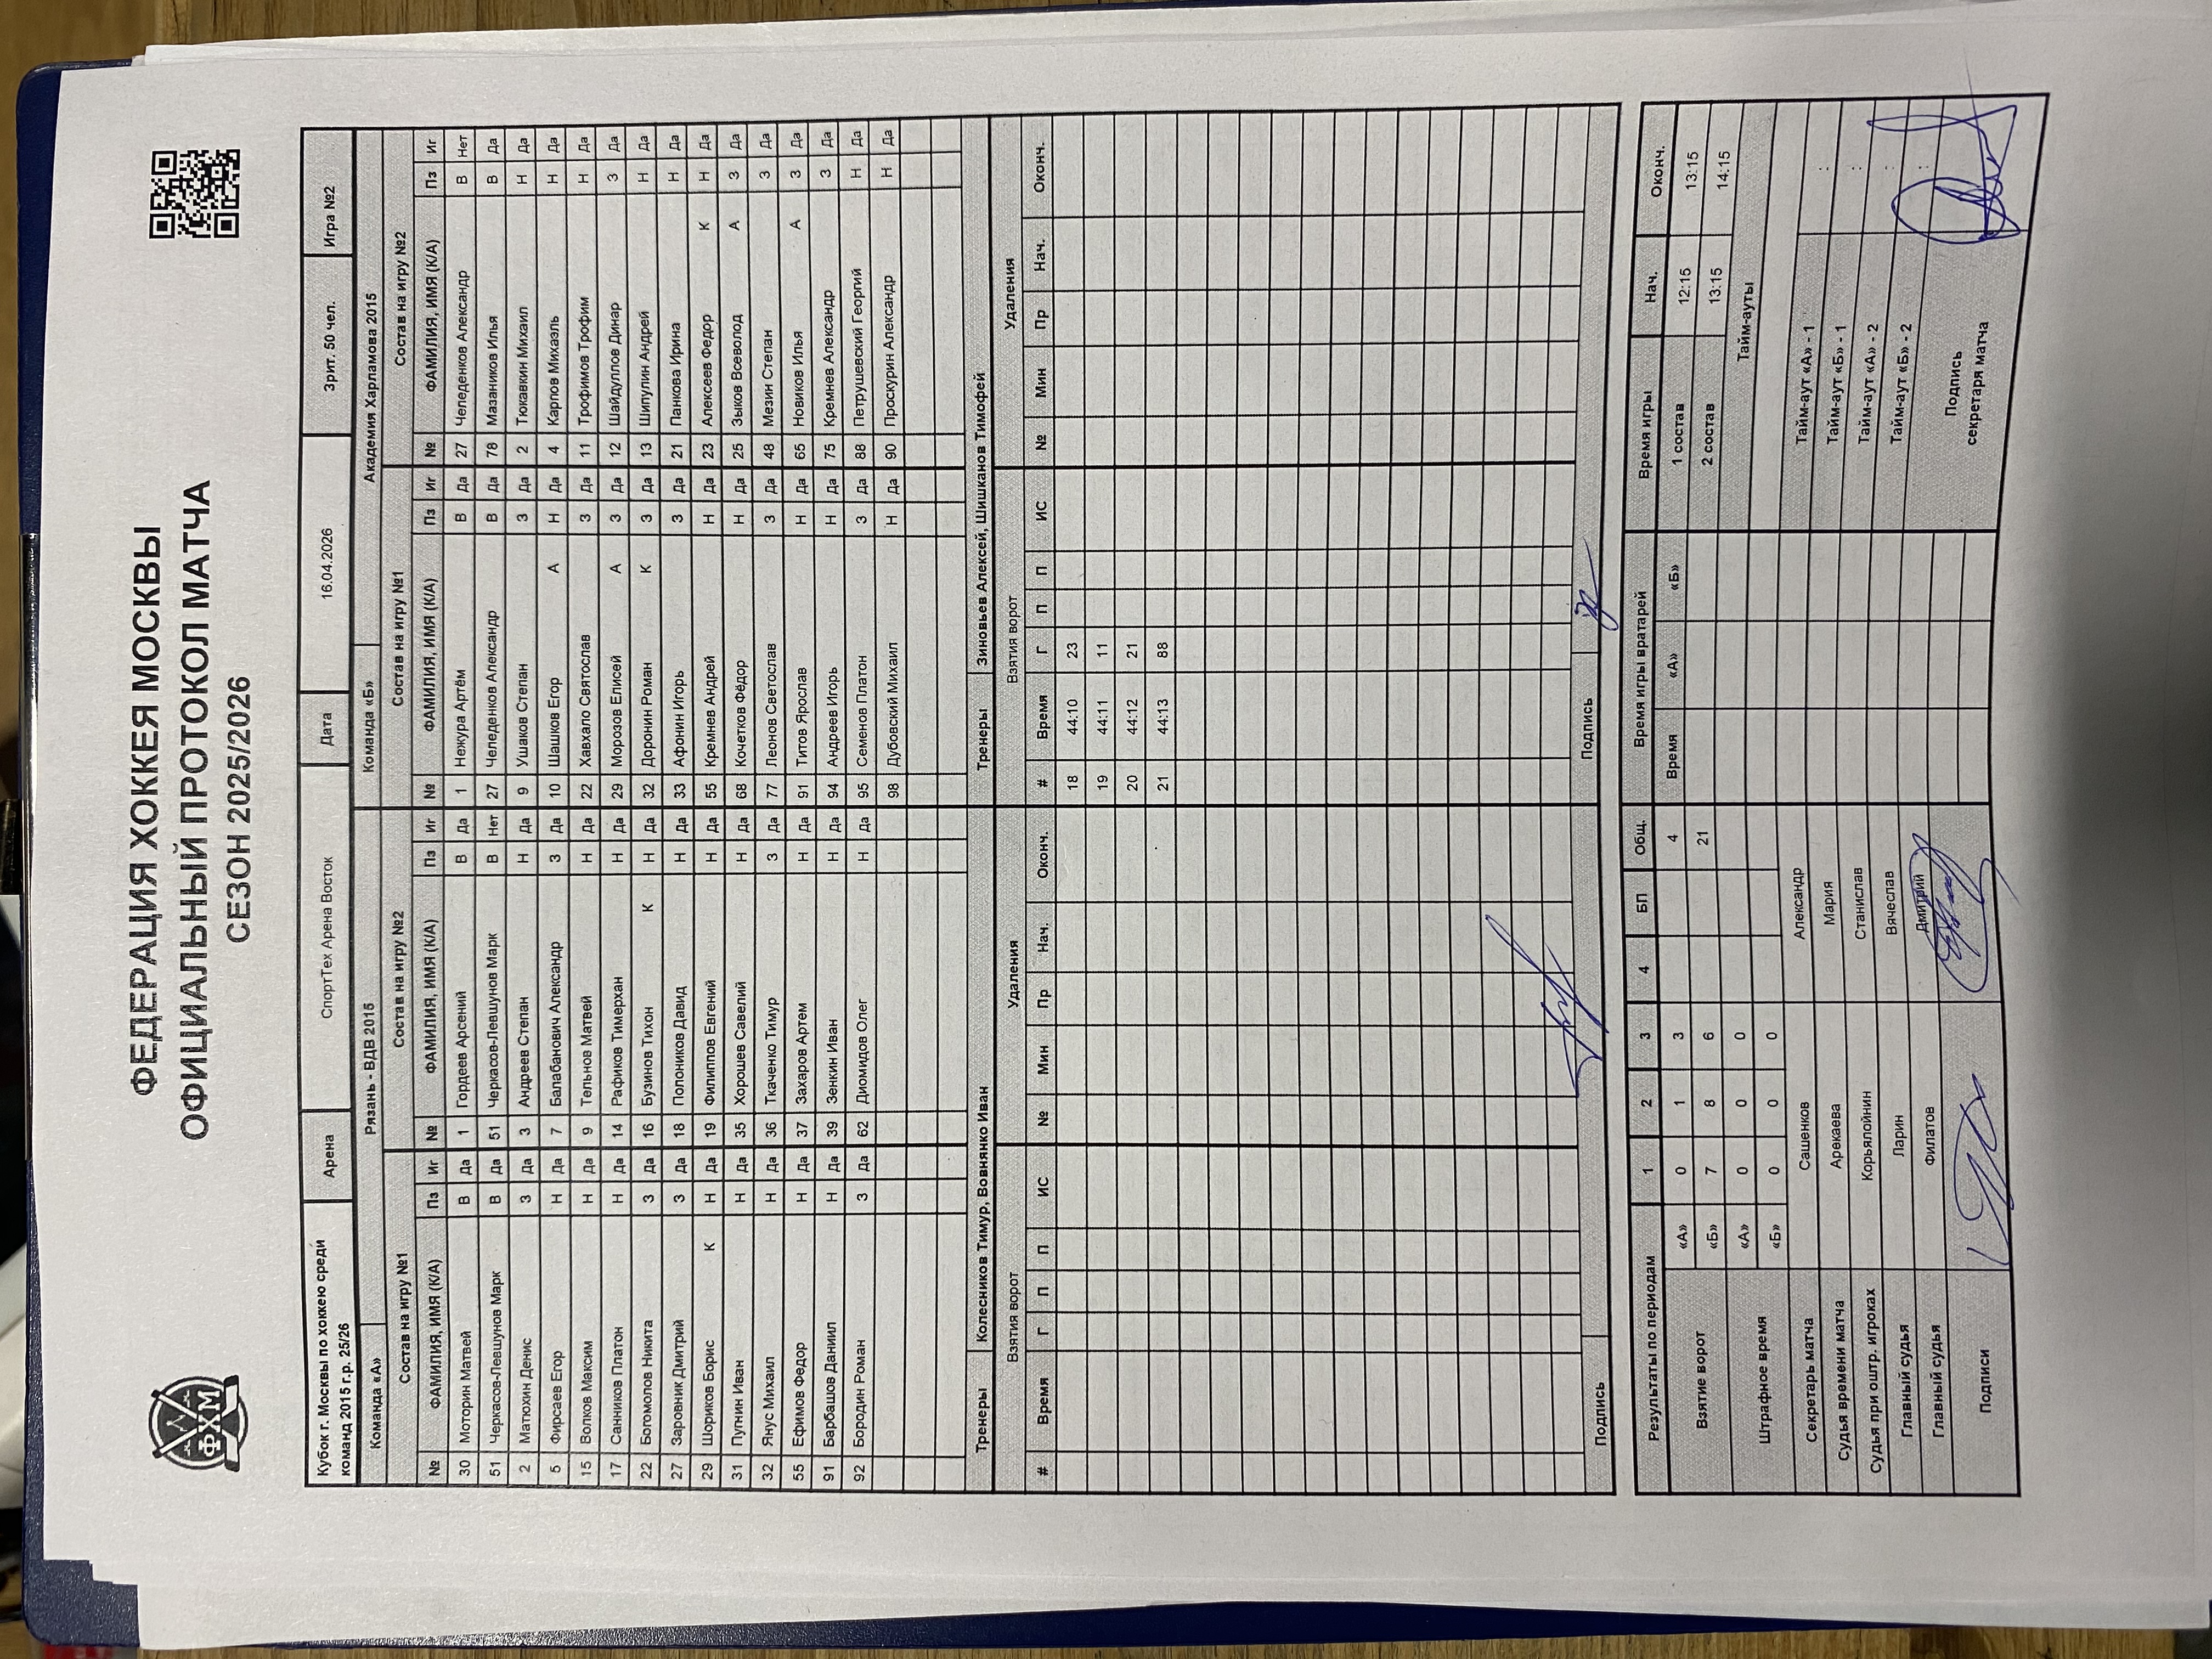 ФЕДЕРАЦИЯ ХОККЕЯ МОСКВЫ
ОФИЦИАЛЬНЫЙ ПРОТОКОЛ МАТЧА
СЕЗОН 2025/2026
ФХМ
Кубок г. Москвы по хоккею среди команд 2015 г.р. 25/26 Арена СпортТех Арена Восток Дата 16.04.2026 Зрит. 50 чел. Игра №2
Команда «А» Рязань - ВДВ 2015 Команда «Б» Академия Харламова 2015
Состав на игру №1 Состав на игру №2 Состав на игру №1 Состав на игру №2
№ ФАМИЛИЯ, ИМЯ (К/А) Пз Иг № ФАМИЛИЯ, ИМЯ (К/А) Пз Иг № ФАМИЛИЯ, ИМЯ (К/А) Пз Иг № ФАМИЛИЯ, ИМЯ (К/А) Пз Иг
30 Моторин Матвей В Да 1 Гордеев Арсений В Да 1 Нежура Артём В Да 27 Челеденков Александр В Нет
51 Черкасов-Левшунов Марк В Да 51 Черкасов-Левшунов Марк В Нет 27 Челеденков Александр В Да 78 Мазаников Илья В Да
2 Матюхин Денис З Да 3 Андреев Степан Н Да 9 Ушаков Степан З Да 2 Тюкавкин Михаил Н Да
5 Фирсаев Егор Н Да 7 Балабанович Александр З Да 10 Шашков Егор А Н Да 4 Карпов Михаэль Н Да
15 Волков Максим Н Да 9 Тельнов Матвей Н Да 22 Хавхало Святослав З Да 11 Трофимов Трофим Н Да
17 Санников Платон Н Да 14 Рафиков Тимерхан Н Да 29 Морозов Елисей А З Да 12 Шайдуллов Динар З Да
22 Богомолов Никита З Да 16 Бузинов Тихон К Н Да 32 Доронин Роман К З Да 13 Шипулин Андрей Н Да
27 Заровник Дмитрий З Да 18 Полоников Давид Н Да 33 Афонин Игорь З Да 21 Панкова Ирина Н Да
29 Шориков Борис К Н Да 19 Филиппов Евгений Н Да 55 Кремнев Андрей Н Да 23 Алексеев Федор К Н Да
31 Пугнин Иван Н Да 35 Хорошев Савелий Н Да 68 Кочетков Фёдор Н Да 25 Зыков Всеволод А З Да
32 Янус Михаил Н Да 36 Ткаченко Тимур З Да 77 Леонов Светослав З Да 48 Мезин Степан З Да
55 Ефимов Федор Н Да 37 Захаров Артем Н Да 91 Титов Ярослав Н Да 65 Новиков Илья А З Да
91 Барбашов Даниил Н Да 39 Зенкин Иван Н Да 94 Андреев Игорь Н Да 75 Кремнев Александр З Да
92 Бородин Роман З Да 62 Диомидов Олег Н Да 95 Семенов Платон З Да 88 Петрушевский Георгий Н Да
98 Дубовский Михаил Н Да 90 Проскурин Александр Н Да
Тренеры Колесников Тимур, Вовнянко Иван Тренеры Зиновьев Алексей, Шишканов Тимофей
Взятия ворот Удаления Взятия ворот Удаления
# Время Г П П ИС № Мин Пр Нач. Оконч. # Время Г П П ИС № Мин Пр Нач. Оконч.
18 44:10 23
19 44:11 11
20 44:12 21
21 44:13 88
Подпись Подпись
Результаты по периодам 1 2 3 4 БП Общ. Время игры вратарей Время игры Нач. Оконч.
Взятие ворот «А» 0 1 3 4 Время «А» «Б» 1 состав 12:15 13:15
«Б» 7 8 6 21 2 состав 13:15 14:15
Штрафное время «А» 0 0 0 Тайм-ауты
«Б» 0 0 0
Секретарь матча Сашенков Александр Тайм-аут «А» - 1 :
Судья времени матча Арекаева Мария Тайм-аут «Б» - 1 :
Судья при оштр. игроках Корьялойнин Станислав Тайм-аут «А» - 2 :
Главный судья Ларин Вячеслав Тайм-аут «Б» - 2 :
Главный судья Филатов Дмитрий
Подписи Подпись секретаря матча